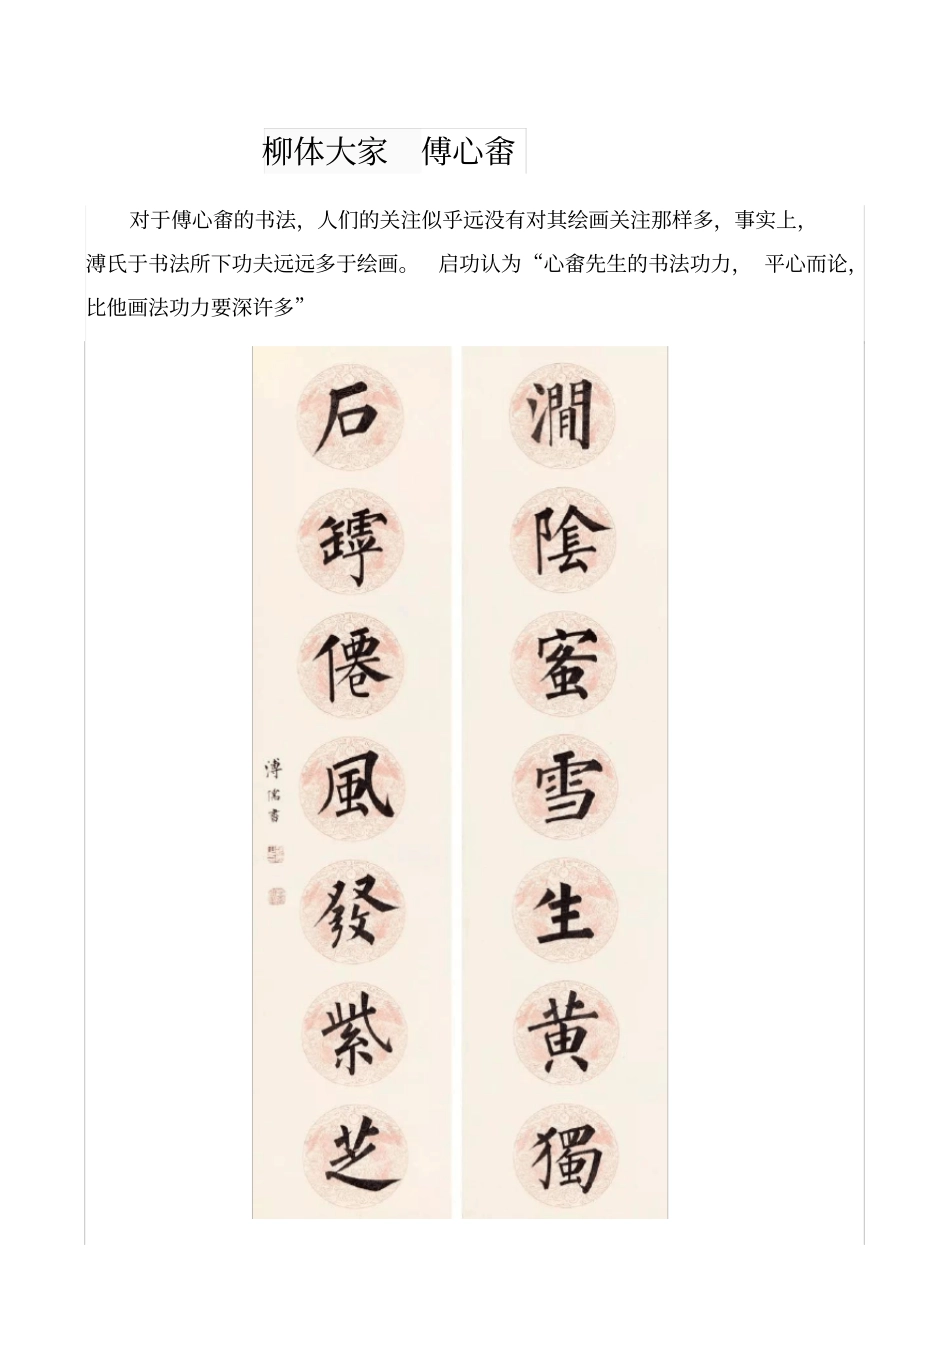 柳体大家　傅心畬
对于傅心畬的书法，人们的关注似乎远没有对其绘画关注那样多，事实上，
溥氏于书法所下功夫远远多于绘画。　启功认为“心畬先生的书法功力，　平心而论，
比他画法功力要深许多”
澗陰蜜雪生黄獨
石罅僊風發紫芝
溥儒書